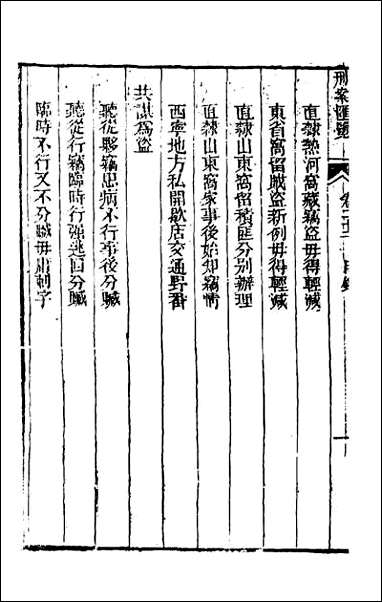 刑案匯覽
卷二十三 目錄
直隸熱河窩藏竊盜毋得輕減
東省窩留賊盜新例毋得輕減
直隸山東窩留積匪分別辦理
直隸山東窩家事後始知竊情
西寧地方私開歇店交通野番
共謀為盜
聽從夥竊患病不行事後分贓
聽從行竊臨時行強逃回分贓
臨時不行又不分贓毋庸刺字